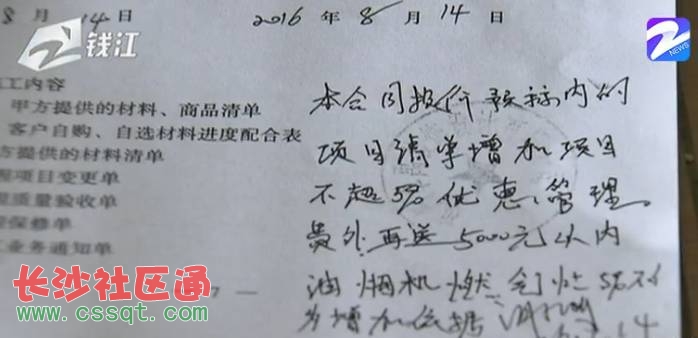 8月14日
2016年8月14日
钱江
NEWS
工内容
甲方提供的材料、商品清单
客户自购、自选材料进度配合表
方提供的材料清单
项目变更单
质量验收单
保修单
业务通知单
7 —
本合同报价预标内的
项目清单增加项目
不超5%优惠管理
费外再送5000元以内
油烟机燃
5%不
为增加依据
14
长沙社区通
www.cssqt.com